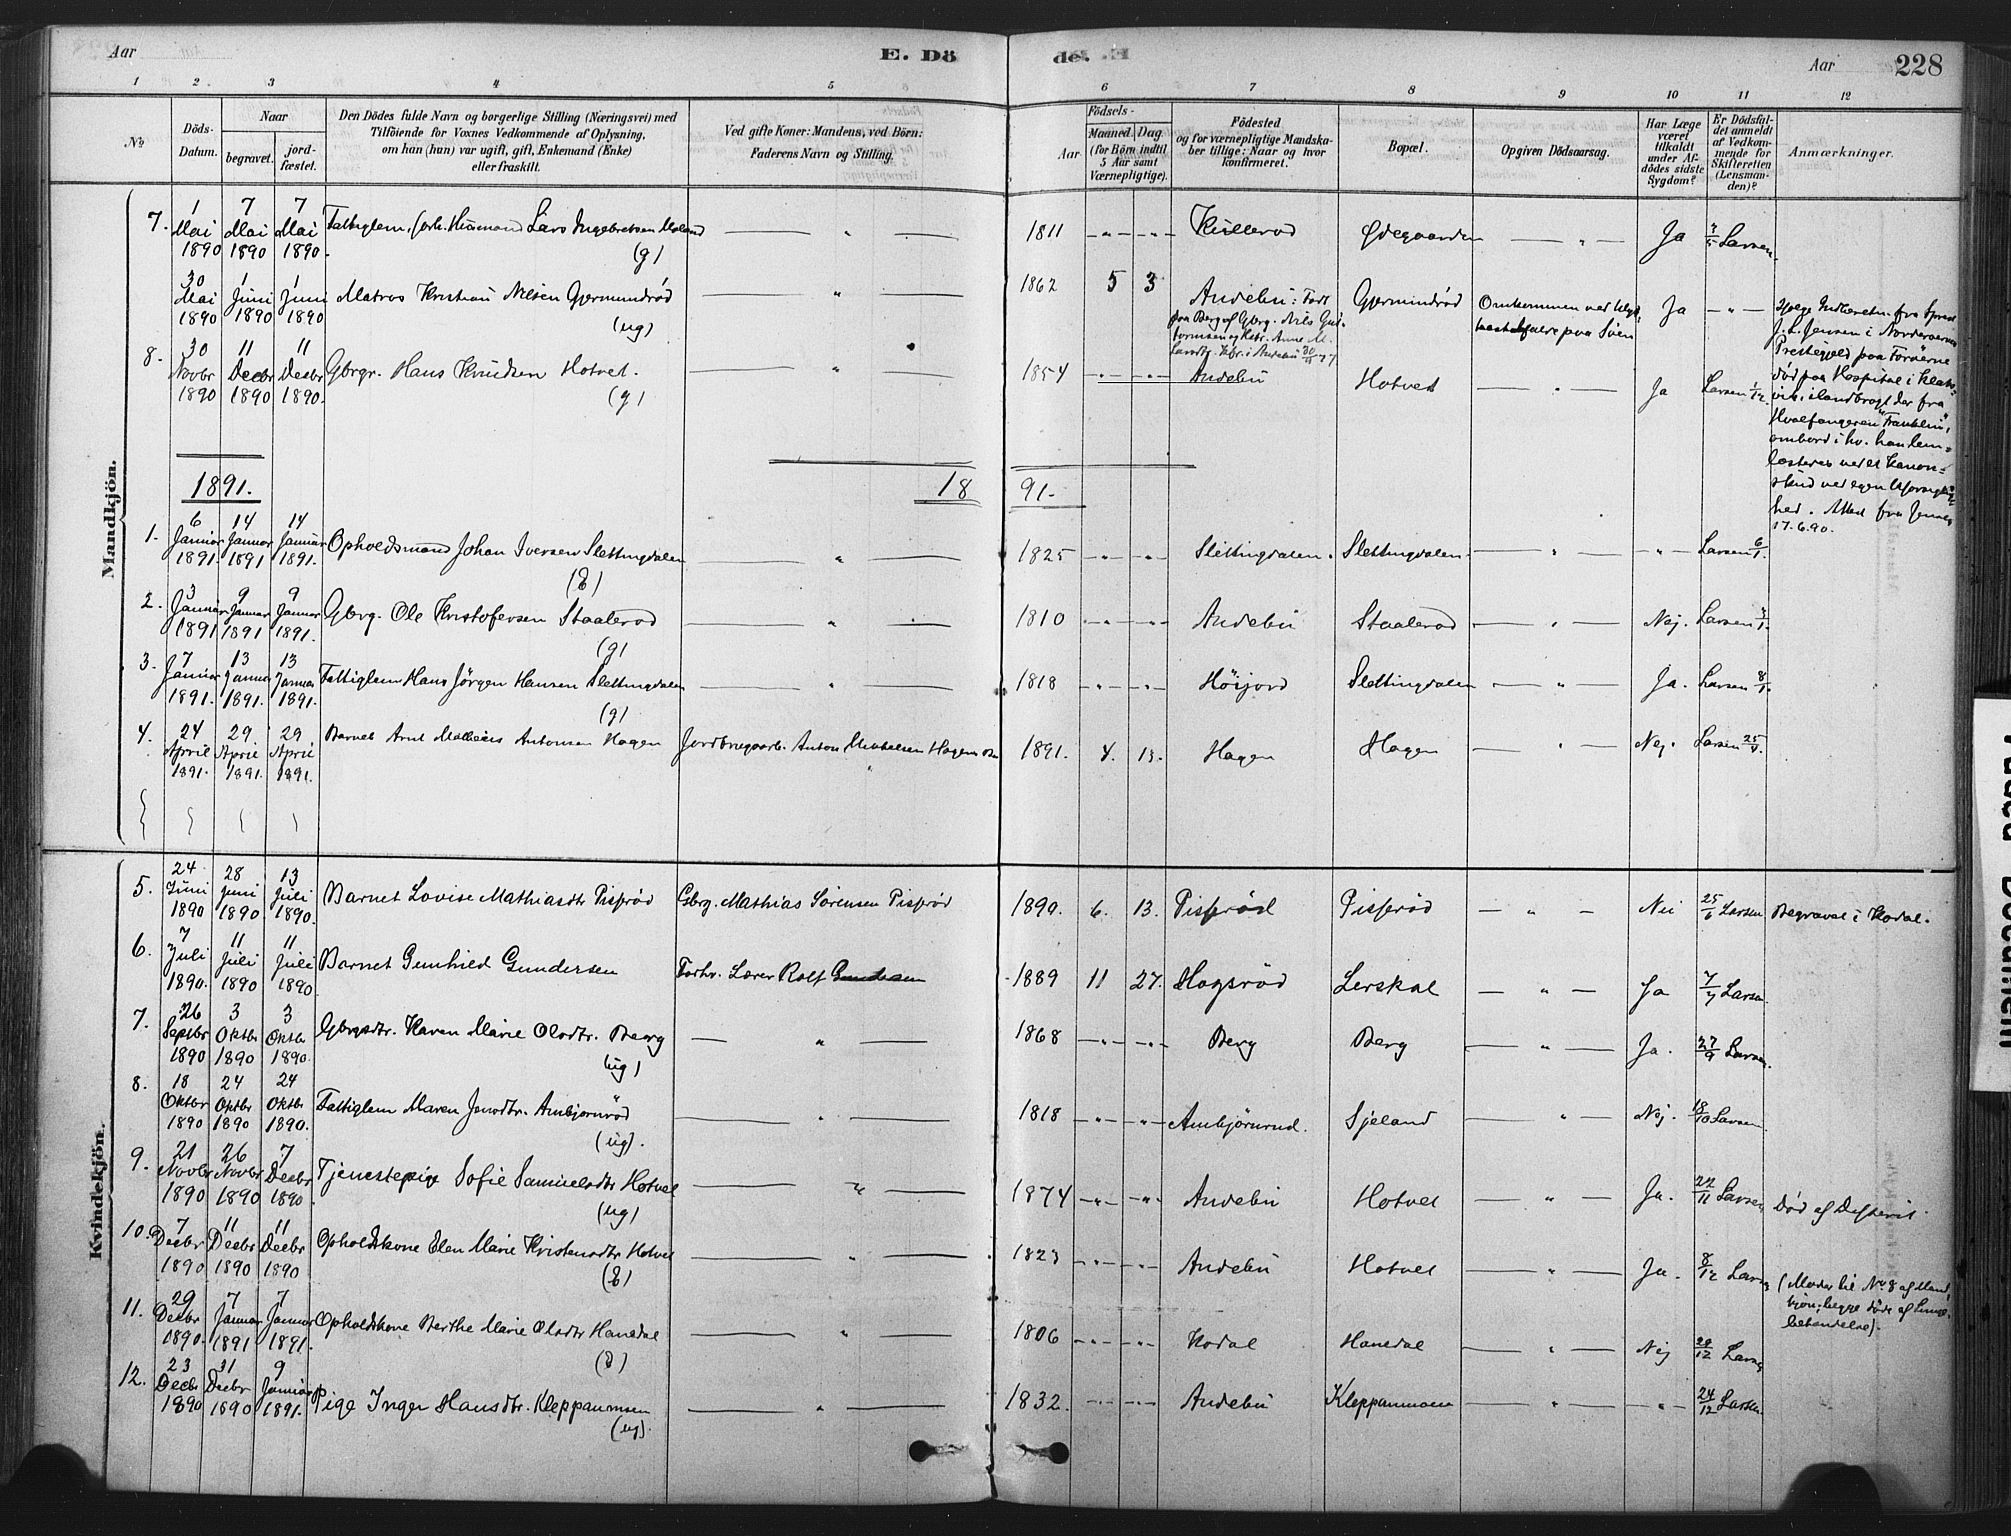 Aar
E. Dö
de. E
Aar
228
1 2. 3 4 5 6 7 8 9 10 11 12
№
Döds-Datum.
Naar
begravet.
jord-fæstet.
Den Dödes fulde Navn og borgerlige Stilling (Næringsvei) med
Tilföiende for Voxnes Vedkommende af Oplysning,
om han (hun) var ugift, gift, Enkemand (Enke)
eller fraskilt.
Ved gifte Koner: Mandens, ved Börn:
Faderens Navn og Stilling.
Födsels-
Aar.
Maaned.
Dag.
(for Börn indtil
5 Aar samt
Værnepligtige).
Födested
og for værnepligtige Mandska-
ber tillige: Naar og hvor
konfirmeret.
Bopæl.
Opgiven Dödsaarsag.
Har Læge
været
tilkaldt
under Af-
dödes sidste
Sygdom?
Er Dödsfal-
det anmeldt
af Vedkom-
mende for
Skifteretten
(Lensman-
den)?
Anmærkninger.
Mandkjön.
7. 1 Mai 1890 7 Mai 1890 7 Mai 1890. Fattiglem, Husmand Lars Ingebretsen Moland (g) — " — 1811 — " — — " — Kullerød Ødegaarden — " — Ja 3/5 Larsen.
30 Mai 1890 1 Juni 1890 1 Juni 1890 Matros Kristian Nilsen Gjermundrød (ug) — " — 1862 5 3 Andebu: Født paa Berg af Gbrg. Nils Gjermundrød Omkommen ved Søen Ja — " —
8. 30 Novbr 1890 11 Decbr 1890 11 Decbr 1890. Gbrgr. Hans Knudsen Hotvet. (g) — " — 1854 — " — — " — Andebu Hotvet — " — Ja Larsen 1/12.
Ifølge Indberetn. fra
J. L. Jensen i Norderøernes
Prestegjeld paa Færøerne
død paa Hospital i Klaks-
vik, ilandbragt der fra
Hvalfangeren "Franklin",
ombord i hv. han lem-
læstedes ved et Kanon-
skud ved egen Uforsigtig-
hed. Att. fra Jensen
17.6.90.
1891.
18 91.
1. 6 Januar 1891. 14 Januar 1891 14 Januar 1891. Opholdsmand Johan Iversen Slettingdalen (E) — " — 1825 — " — — " — Slettingdalen. Slettingdalen. — " — — " — Larsen 6/1.
2. 3 Januar 1891 9 Januar 1891 9 Januar 1891. Gbrg. Ole Kristofersen Staalerød (g) — " — 1810 — " — — " — Andebu Staalerød — " — Nej. Larsen 3/1.
3. 7 Januar 1891. 13 Januar 1891. 13 Januar 1891. Fattiglem Hans Jörgen Hansen Slettingdalen (g) — " — 1818 — " — — " — Höijord Slettingdalen — " — Ja. Larsen 8/1.
4. 24 April 1891. 29. April 1891. 29. April 1891. Barnet Arnt Mathias Antonsen Hagen Jordbrugsarb. Anton Mikkelsen Hagen 1891. 4. 13. Hagen Hagen — " — Nej. Larsen 25/4.
Kvindekjön.
5. 24 Juni 1890 28 Juni 1890 13 Juli 1890. Barnet Lovise Mathiasdtr Pisserød Gbrg. Mathias Sörensen Pisserød 1890. 6. 13. Pisserød Pisserød — " — Nei 25/6 Larsen Begravet i Kodal.
6. 7 Juli 1890. 11 Juli 1890 11 Juli 1890 Barnet Gunhild Gundersen Forhv. Lærer Rolf Gundersen 1889 11 27. Hogsrød Lerskal — " — Ja 7/7 Larsen
7. 26 Septbr 1890 3 Oktbr 1890 3 Oktbr 1890. Gbrgsdtr. Karen Marie Olsdtr. Berg (ug) — " — 1868 — " — — " — Berg Berg — " — Ja. 27/9 Larsen.
8. 18 Oktbr 1890 24 Oktbr 1890 24 Oktbr 1890. Fattiglem Maren Jensdtr. Ambjörnrød (ug). — " — 1818 — " — — " — Ambjörnrud. Sjeland — " — Nej. 18/10 Larsen.
9. 21 Novbr 1890 26 Novbr 1890 7 Decbr 1890. Tjenestepige Sofie Samuelsdtr Hotvet (ug) — " — 1874 — " — — " — Andebu Hotvet — " — Ja. 22/11 Larsen Död af Difterit.
10. 7 Decbr 1890 11 Decbr 1890 11 Decbr 1890 Opholdskone Elen Marie Kristensdtr Hotvet (E) — " — 1823 — " — — " — Andebu Hotvet — " — Ja. 8/12 Larsen (Moder til No 8 af Mand-
kjön; begge döde af Lunge-
betændelse).
11. 29 Decbr 1890. 7 Januar 1891 7 Januar 1891. Opholdskone Berthe Marie Olsdtr Hanedal (E) — " — 1806 — " — — " — Kodal Hanedal — " — Nej 29/12 Larsen
12. 23 Decbr 1890 31 Decbr 1890 9 Januar 1891. Pige Inger Hansdtr. Kleppanmoen (ug). — " — 1832. — " — — " — Andebu Kleppanmoen — " — — " — 24/12 Larsen